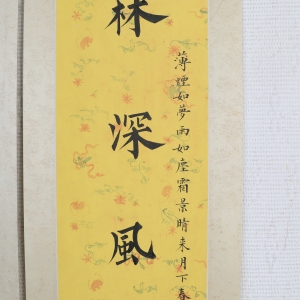 林深風
薄煙如夢雨如塵霜景晴來月下春